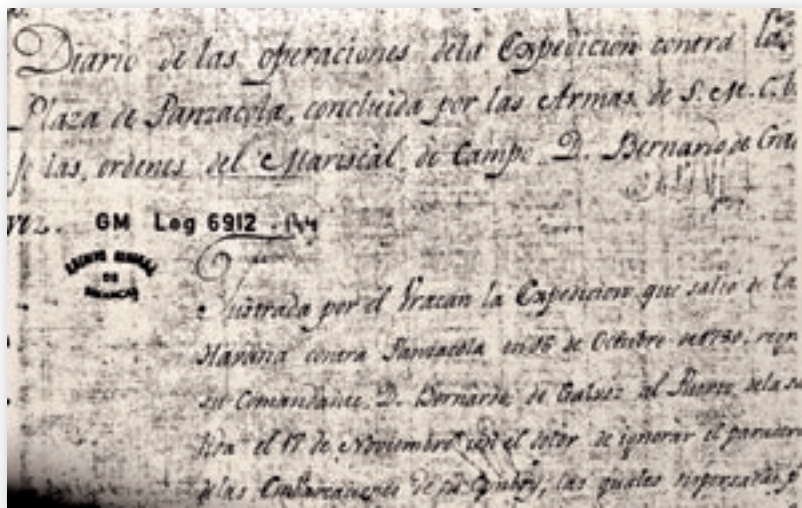 Diario de las operaciones dela Expedicion contra la
Plaza de Panzacola, concluida por las Armas de S. M. C. b
las ordenes del Mariscal de Campo D. Bernardo de Gal
vez.
GM Leg 6912
ARCHIVO GENERAL
DE
SIMANCAS
Frustrada por el Vracan la Expedicion que salio de la
Havana contra Panzacola en 16 de Octubre de 1780,
su Comandante D. Bernardo de Galvez al Puerto dela
el 17 de Noviembre con el dolor de ignorar el paradero
delas Embarcaciones de su Comboy, las quales